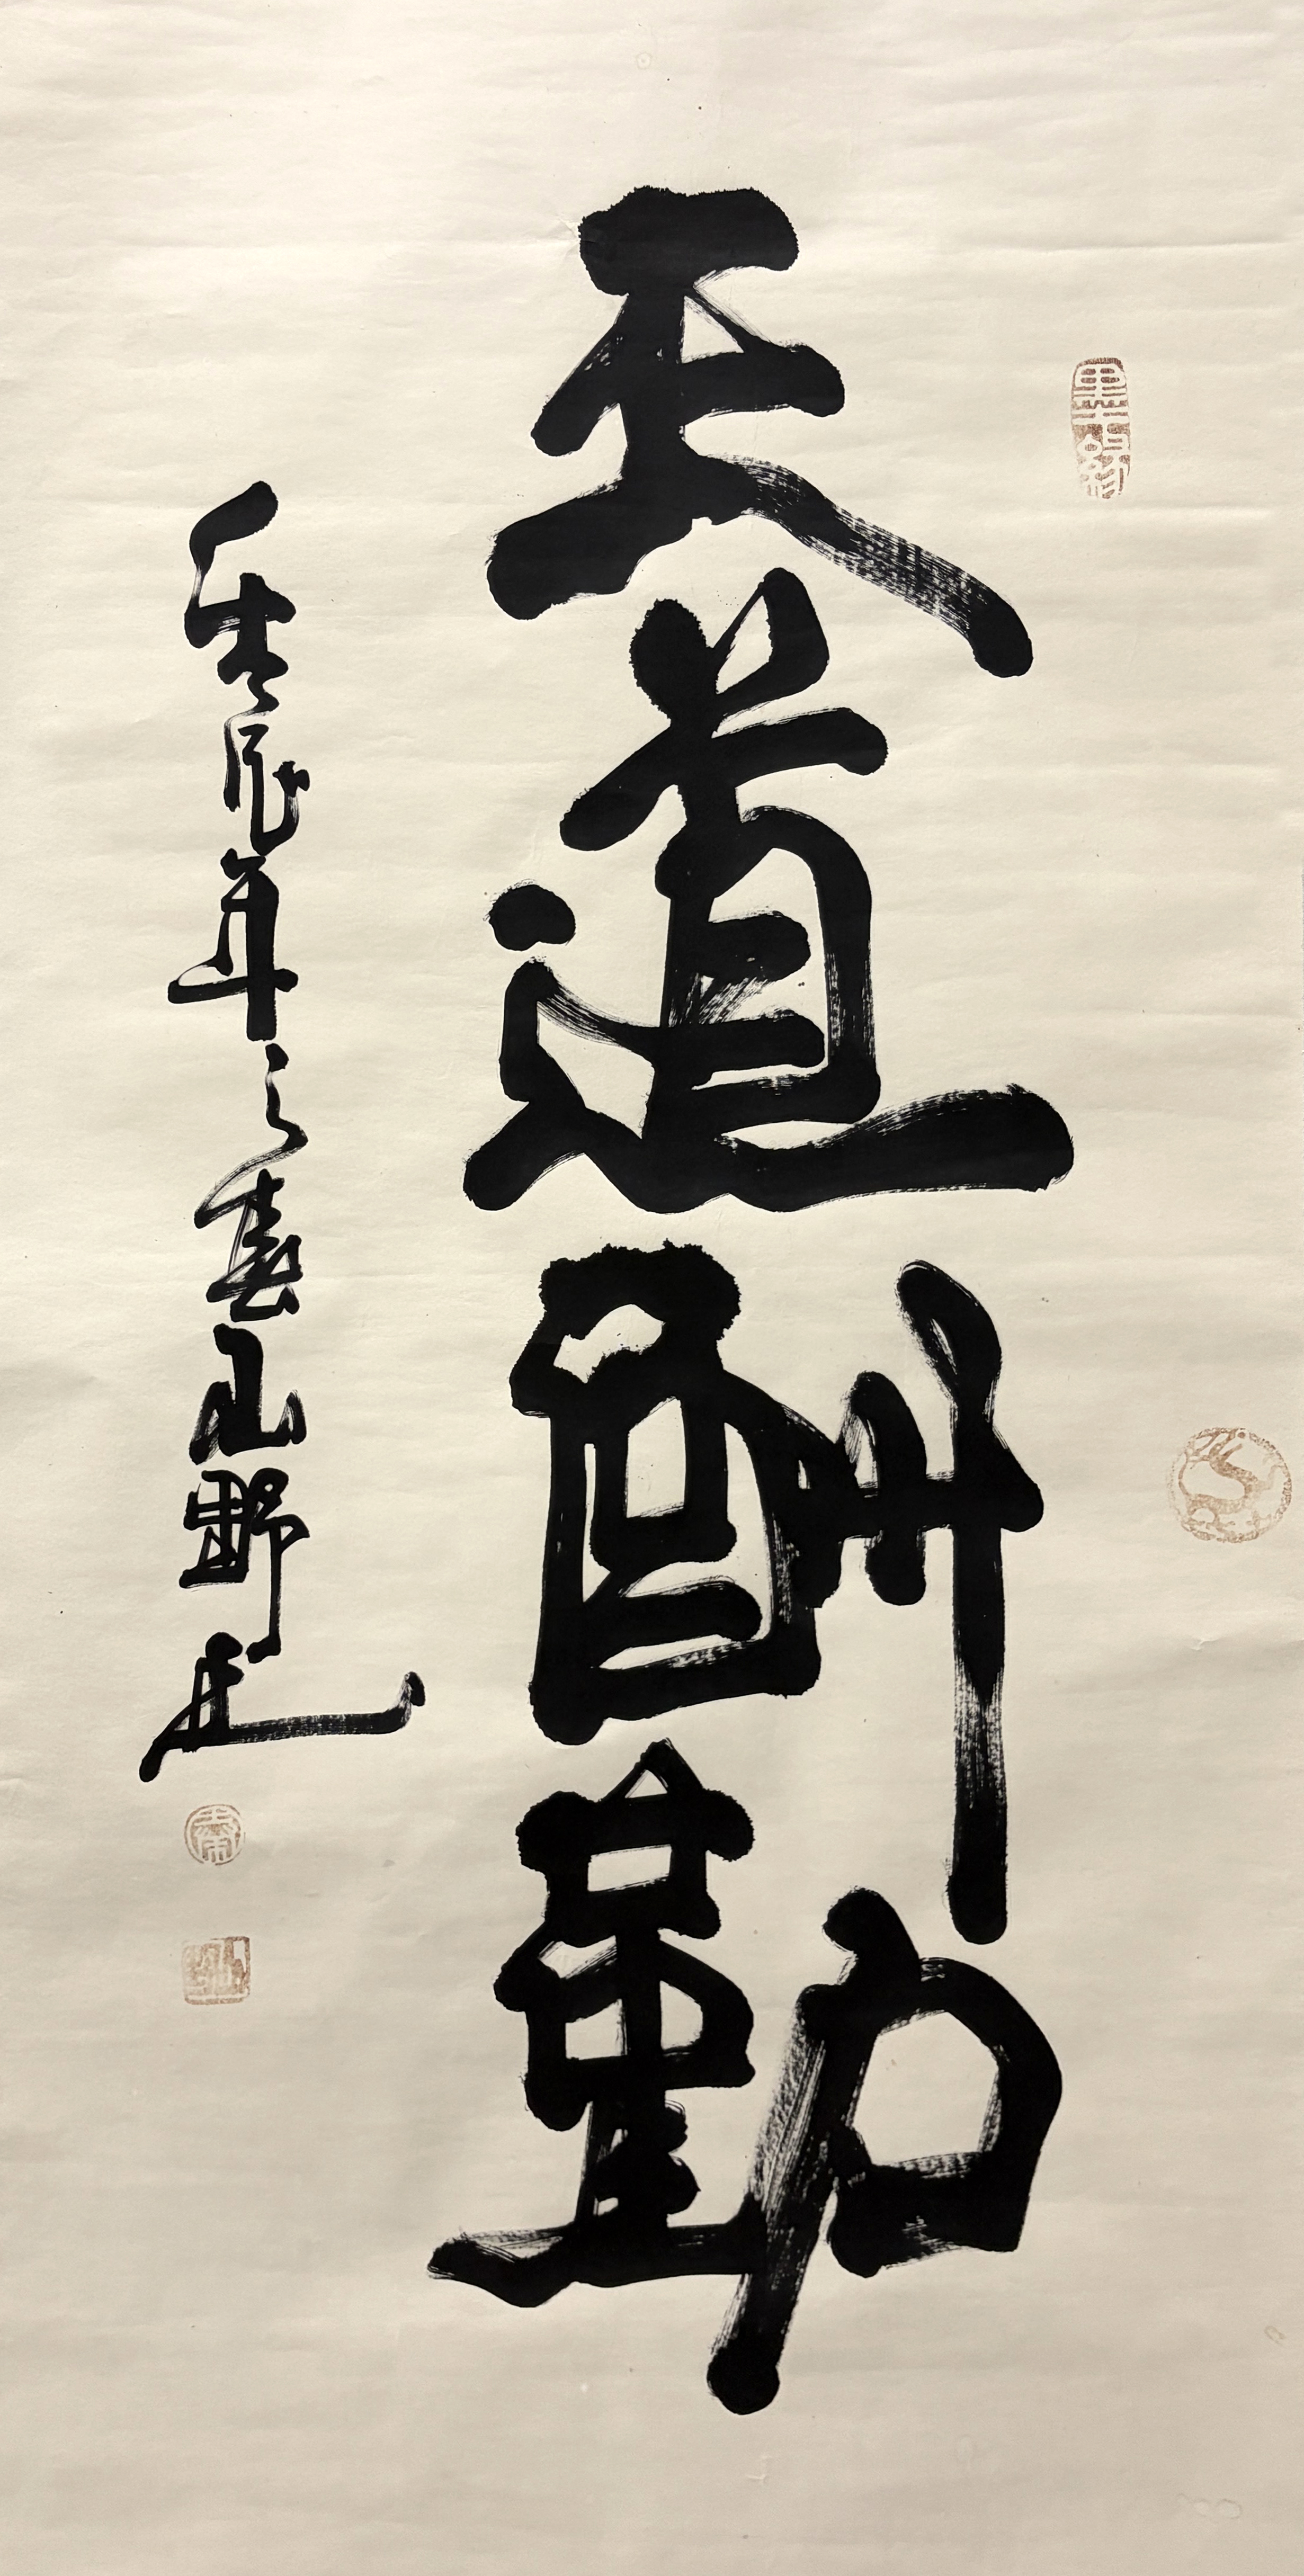 天道酬勤
壬辰年之春山野
墨缘